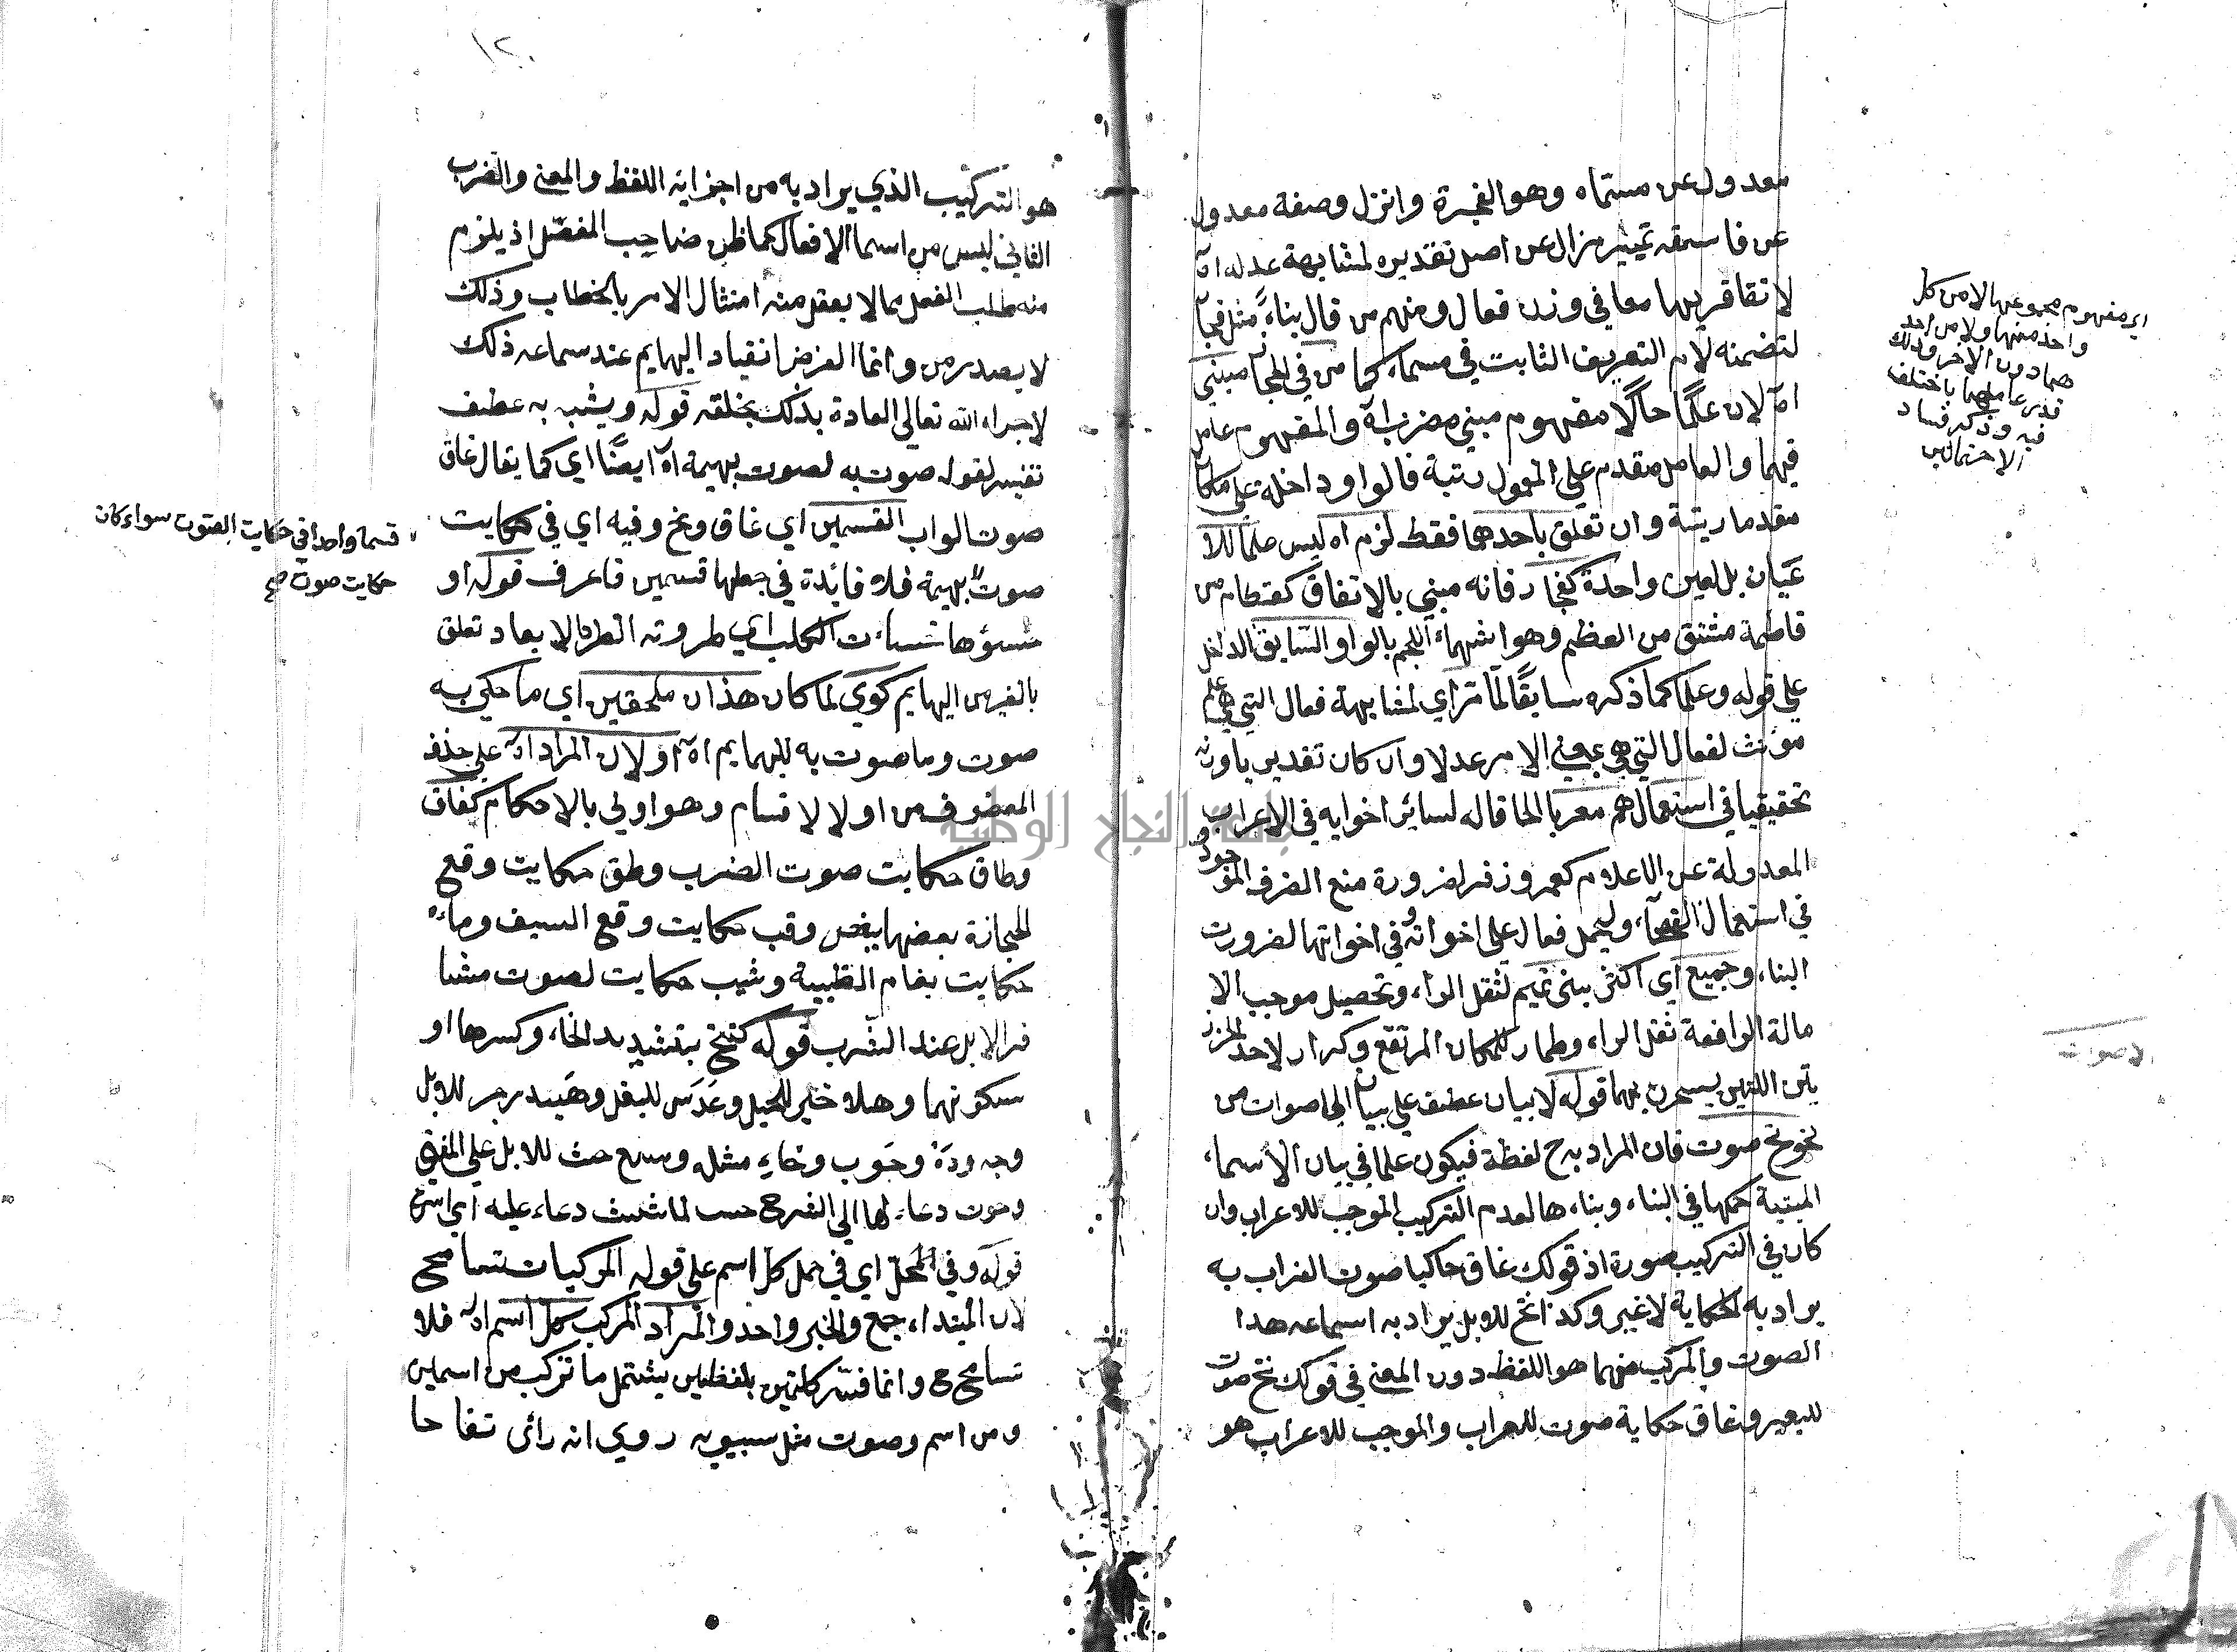 معدول عن مستماه وهو الفجرة وانزل وصفة معدول
عن فاسقه تمييز زال عن اصل تقديره لمشابهة عدله اه
لاتفاقريهما معا في وزن فعال ومنهم من قال بناء مثل فجار
لتضمنه لام التعريف الثابت في مسماه كما من في المجاز مبني
اه لان علما حالا مفهوم مبني مضرزاة والمفهوم عامل
فيهما والعامل مقدم على المعمول رتبة فالواو داخلة على مكان
مقدما رتبة وان تعلق باحدهما فقط لزم اه ليس علما للا
عيان بل لعين واحدة كفجار فانه مبني بالاتفاق كقطام من
قاطمة مشتق من العظم وهو اشهاء اللجم بالواو السابق الداخل
على قوله وعلما كما ذكره سابقا لما مر اي لمشابهة فعال التي هي علم
مؤنث لفعال التي هي بمعنى الامر عدلا وان كان تقديريا وزنه
تحقيقيا في استعمالهم معربا لحاقاله لسائر اخوايه في الاعراب
المعدولة عن الاعلام كعمر وزفر لضرورة منع الصرف الموجود
في استعمال الفصحاء وليحمل فعال على اخواته في اخواتها لضرورت
البناء وجميع اي اكثر بني تميم لثقل الراء وتحصيل موجب الا
مالة الوافعة ثقل الراء وطمار للمكان المرتفع وكرار لاحد الخرز
تين اللتين يسحرن بهما قوله لا بيان عطف على بيان الاصوات من
نحو نخ صوت فان المراد به ح لفظة فيكون علما في بيان الاسماء
المبنية حكمها في البناء وبناءها لعدم التركيب الموجب للاعراب وان
كان في التركيب صورة اذ قولك غاق حاكيا صوت الغراب به
يراد به الحكاية لا غير وكذا نخ للابل يراد به اسماعه هذا
الصوت والمركب منهما هو اللفظ دون المعنى في قولك نخ صوت
للبعير وغاق حكاية صوت للغراب والموجب للاعراب هو
اي مفهوم مجموعها لا من كل
واحد منهما ولا من احد
هما دون الاخر وذلك
فيه وذكر فساد
الاحتمالين
الاصوات
١٢٠
هو التركيب الذي يراد به من اجزايه اللفظ والمعنى والضرب
الثاني ليس من اسماء الافعال كما ظن صاحب المفصل اذ يلزم
منه طلب الفعل مما لا يعقل منه امتثال الامر بالخطاب وذلك
لا يصدر من وانما الغرض انقياد البهايم عند سماعه ذلك
لاجراء الله تعالى العادة بذلك بخلقه قوله ويشب به عطف
تفسير لقوله صوت به لصوت بهيمة اه ايضا اي كما يقال غاق
صوت الواب القسمين اي غاق ونخ وفيه اي في حكايت
صوت بهيمة فلا فائدة في جعلها قسمين فاعرف قوله او
بالغير من البهايم كوي لما كان هذان ملحقين اي ما حكي به
صوت وما صوت به للبهايم اه او لان المراد اه على حذف
المعضوف من اولا لاقسام وهو اولى بالاحكام كغاق
وطاق حكايت صوت الضرب وطق حكايت وقع
الحجارة بعضها ببعض وقب حكايت وقع السيف وماء
حكايت بغام الظبية وشيب حكايت لصوت مشا
فر الابل عند الشرب قوله كنخ بتشديد الخاء وكسرها او
سكونهما وهلا خير للخيل وعدس للبغل وهيد زجر للابل
وجه وده وحوب وخاء مثله وسع حث للابل على المضي
قوله وفي المحل اي في حمل كل اسم على قوله المركبات تسامح
لان المبتداء جمع والخبر واحد والمراد المركب كل اسم اه فلا
تسامح ح وانما فسر كلمتين بلفظين يشتمل ما تركب من اسمين
ومن اسم وصوت مثل سيبويه روي انه رائى تفاحا
قسما واحدا في حكايت الصوت سواء كان
حكايت صوت صح
جامعة النجاح الوطنية